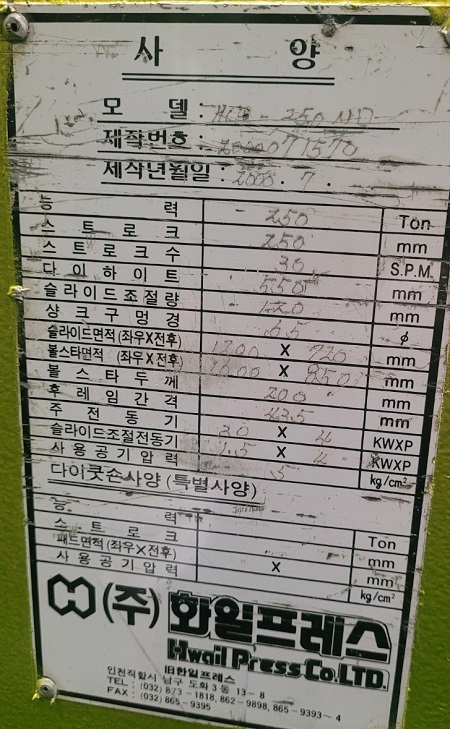 사 양
모 델 : HCP - 250
제작번호 : 2000071570
제작년월일 : 2000 . 7 .
능 력 250 Ton
스 트 로 크 250 mm
스 트 로 크 수 30 S.P.M
다 이 하 이 트 550 mm
슬라이드조절량 120 mm
샹 크 구 멍 경 65 ϕ
슬라이드면적 (좌우X전후) 1200 X 720 mm
볼스타면적 (좌우X전후) X 850 mm
볼 스 타 두 께 200 mm
후 레 임 간 격 mm
주 전 동 기 X 4 KWXP
슬라이드조절전동기 1.5 X 4 KWXP
사 용 공 기 압 력 5 kg/cm²
다이쿳숀사양 (특별사양)
능 력 Ton
스 트 로 크 mm
패드면적 (좌우X전후) X mm
사 용 공 기 압 력 kg/cm²
(주) 화일프레스
Hwail Press Co. LTD.
旧한일프레스
인천직할시 남구 도화 3 동 13 - 8
TEL : (032) 873 - 1818, 862 - 9898, 865 - 9393 ~ 4
FAX : (032) 865 - 9395